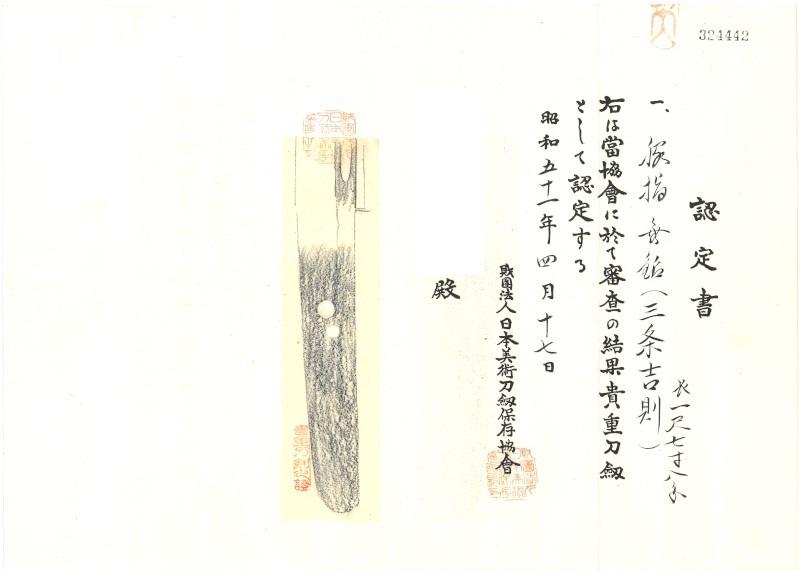 324442
認定書
一、脇指 無銘(三条吉則)
長一尺七寸八分
右は當協會に於て審査の結果貴重刀劔
として認定する
昭和五十一年四月十七日
財團法人日本美術刀劔保存協會
殿